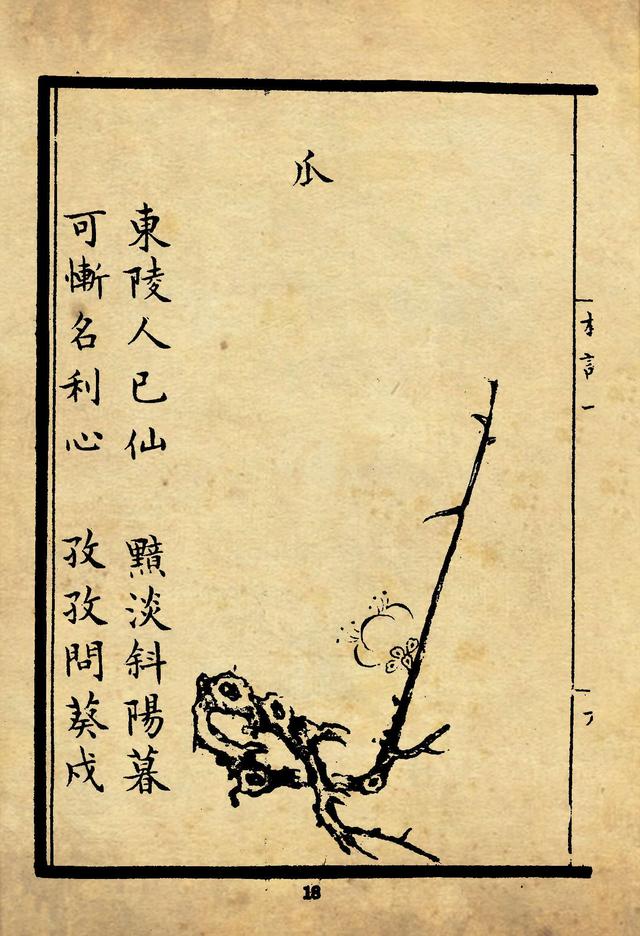 瓜
東陵人已仙
黯淡斜陽暮
可慚名利心
孜孜問葵戍
18